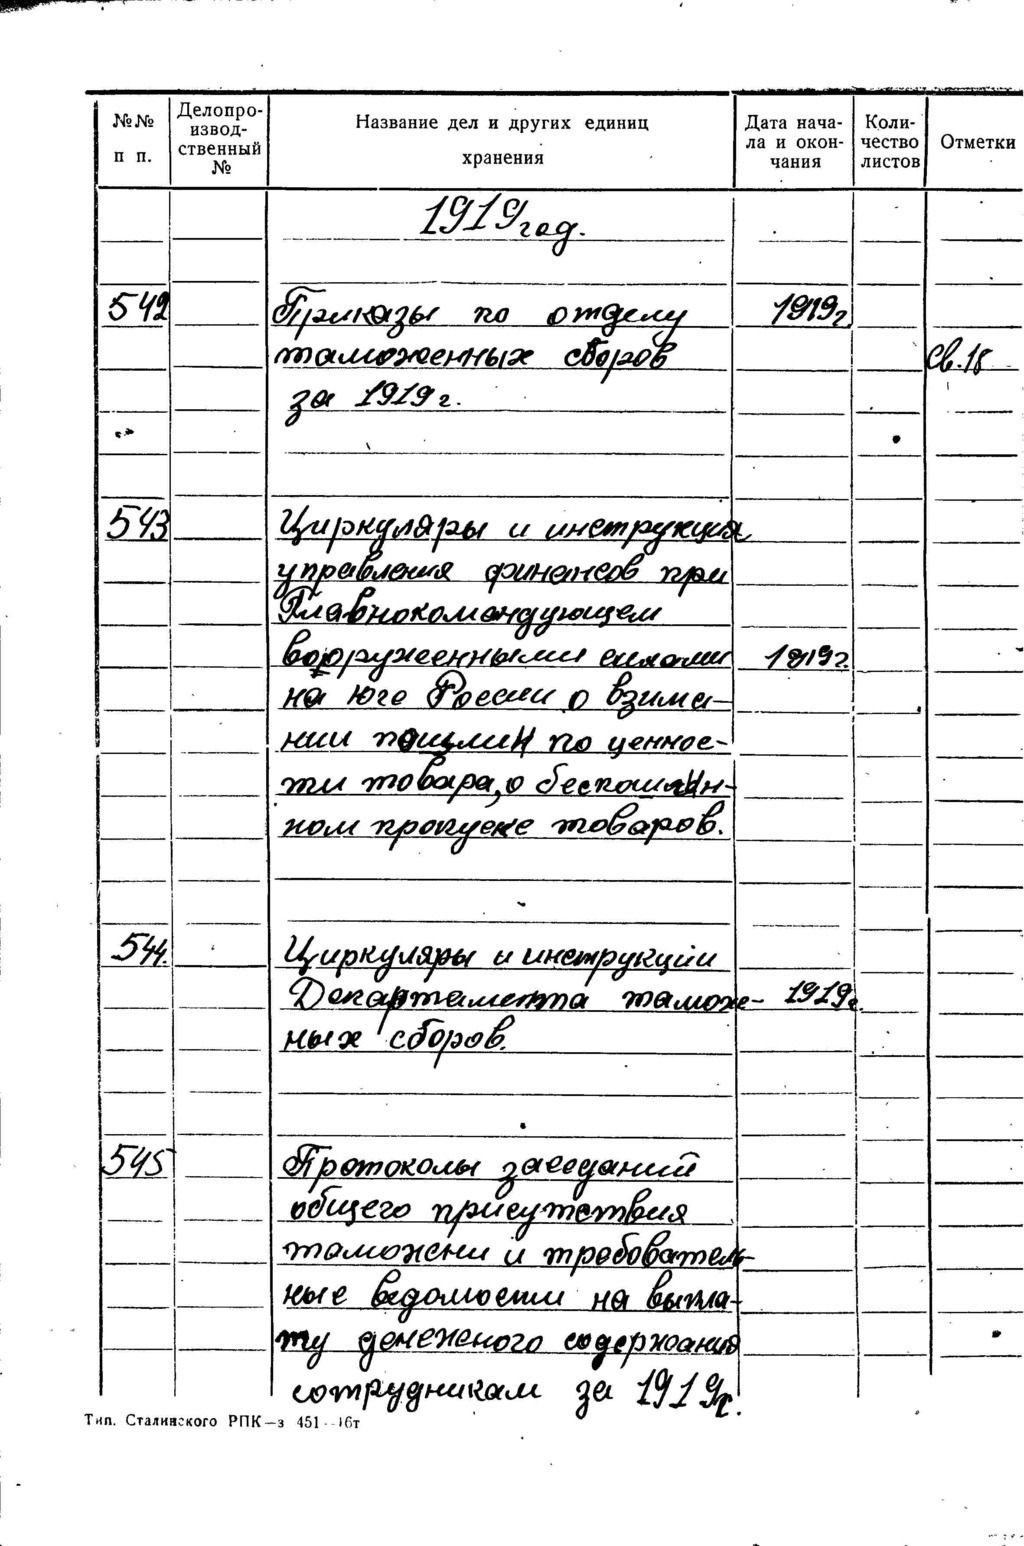 №№ п п.
Делопро-
извод-
ственный
№
Название дел и других единиц
хранения
Дата нача-
ла и окон-
чания
Коли-
чество
листов
Отметки
1919 год.
542 Приказы по отделу 1919г.
таможенных сборов Св.18
за 1919 г.
543 Циркуляры и инструкция
управления финансов при
Главнокомандующем
вооруженными силами 1919г.
на юге России о взима-
нии пошлин по ценнос-
ти товара, о беспошлин-
ном пропуске товаров.
544. Циркуляры и инструкции
Департамента таможе- 1919г.
ных сборов.
545 Протоколы заседаний
общего присутствия
таможени и требователь-
ные ведомости на выпла-
ту денежного содержания
сотрудникам за 1919г.
Тип. Сталинского РПК—з 451--16т